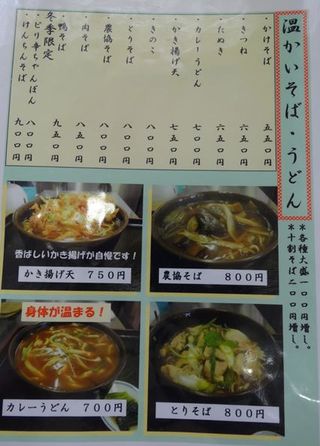 温かいそば・うどん
かけそば 五五〇円
きつね 六五〇円
たぬき 六五〇円
カレーうどん 七〇〇円
かき揚げ天 七五〇円
きのこ 八〇〇円
とりそば 八〇〇円
農協そば 八〇〇円
肉そば 八五〇円
鴨そば 九五〇円
冬季限定
・ピリ辛ちゃんぽん 八〇〇円
・けんちんそば 九〇〇円
*各種大盛一〇〇円増し。
*十割そば二〇〇円増し。
香ばしいかき揚げが自慢です!
かき揚げ天 750円
農協そば 800円
身体が温まる!
カレーうどん 700円
とりそば 800円